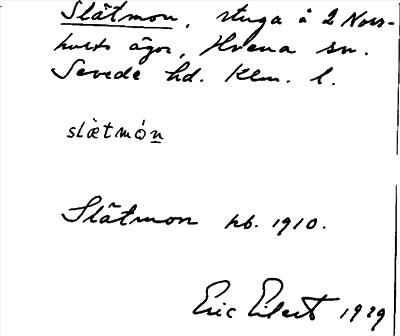 Slätmon, stuga å 2 Nors-
hults ägor, Hvena sn.
Sevede hd. Klm. l.
slä̀tmón
Slätmon hb. 1910.
Eric Elert 1929